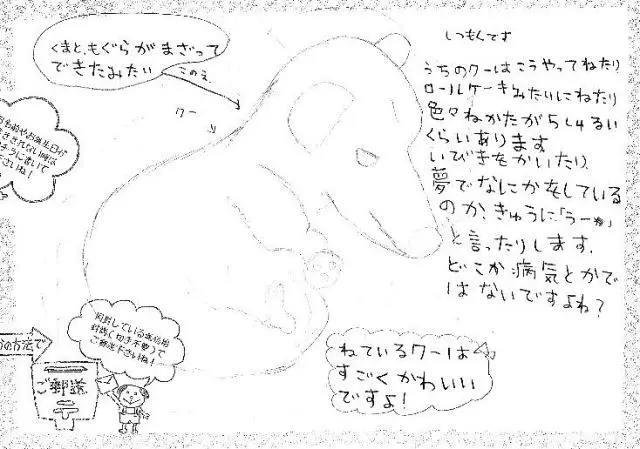 くまと、もぐらがまざって
できたみたい このえ
クー
しつもんです
うちのクーはこうやってねたり
ロールケーキみたいにねたり
色々ねかたが5しゅるい
くらいあります
いびきをかいたり、
夢でなにかをしている
のか、きゅうに「うー
と言ったりします.
どこか病気とかで
はないですよね?
お名前やお誕生日が
ください!
の方法で
ご郵送
〒
同封している返信用
封筒(切手不要)で
ご郵送下さいね!
ねているクーは
すごくかわいい
ですよ!